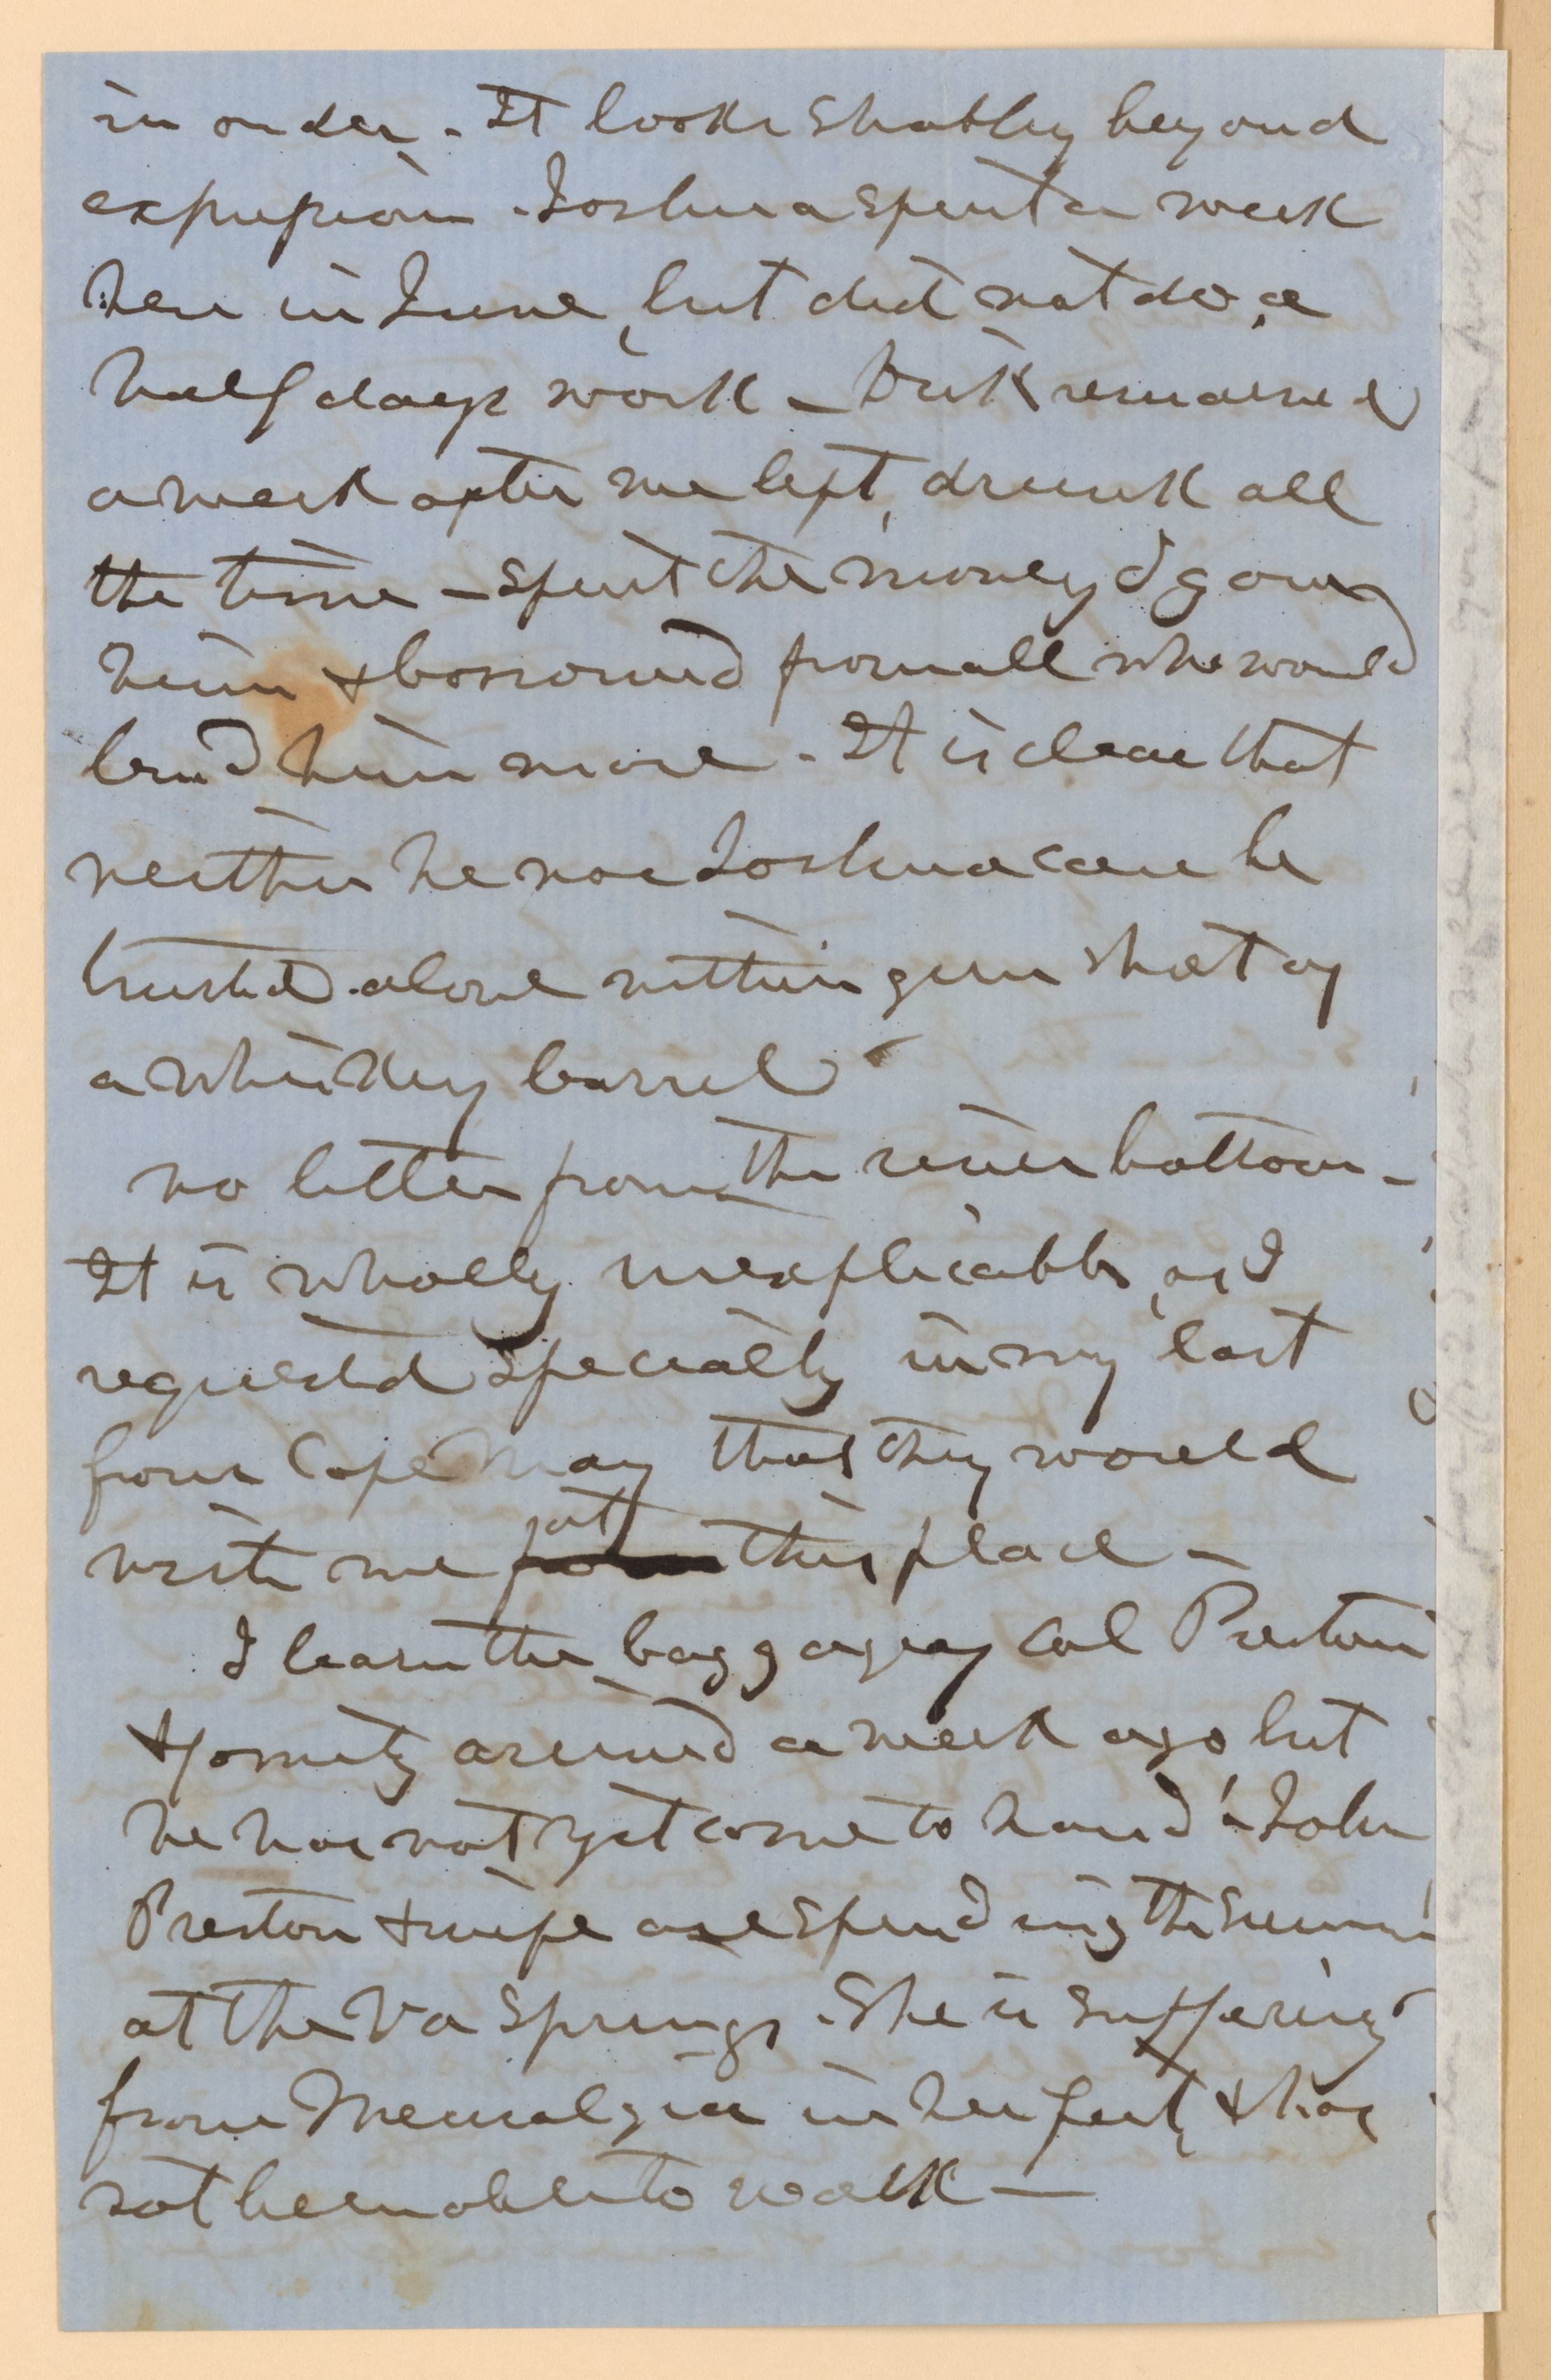 in order - It looks shabby beyond
expression - Joshua spent a week
here in June, but did not do a
half days work - Dick remained
a week after we left, drunk all
the time - spent the money I gave
him & borrowed from all who would
lend him more - It is clear that
neither he nor Joshua can be
trusted alone within gun shot of
a whiskey barrel
No letter from the river bottom -
It is wholly inexplicable, as I
requested specially in my last
from Cape May that they would
write me at this place -
I learn the baggage of Col Preston
& family arrived a week ago, but
he has not yet come to hand - John
Preston & wife are spending the summer
at the Va Springs. She is suffering
from Neuralgia in her feet, & has
not been able to walk -